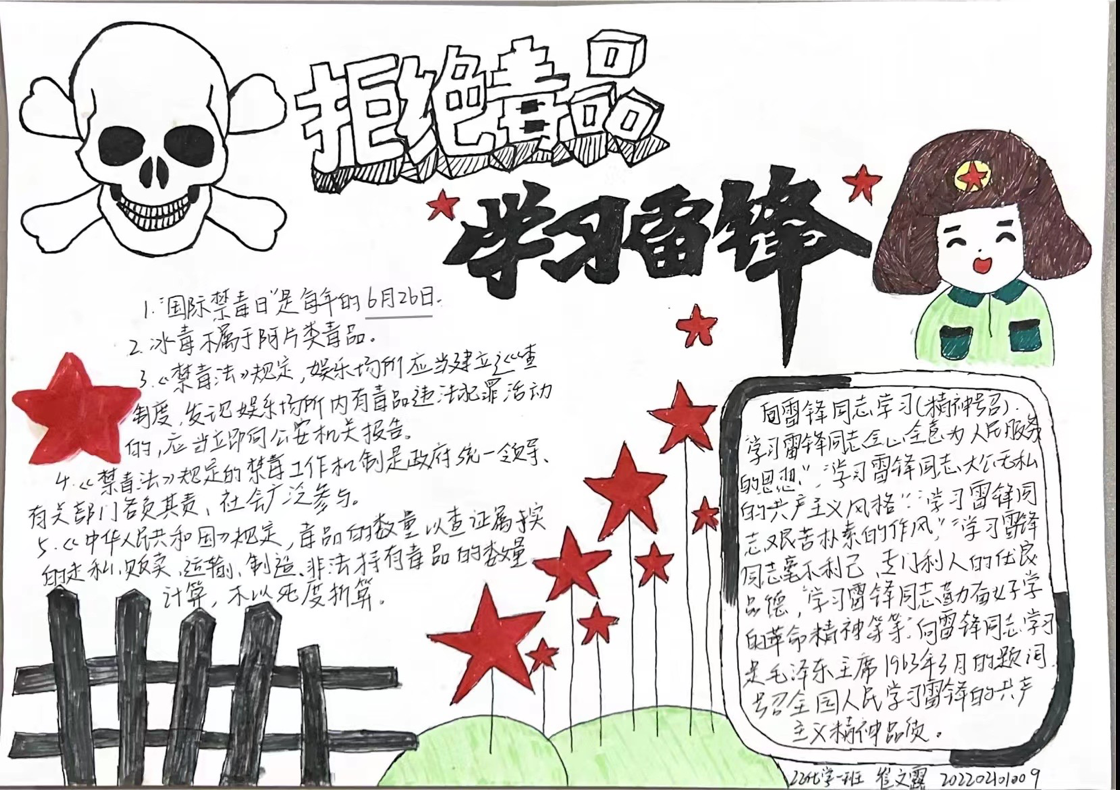 拒绝毒品
学习雷锋
1."国际禁毒日"是每年的6月26日.
2.冰毒不属于阿片类毒品。
3.《禁毒法》规定,娱乐场所应当建立巡查
制度,发现娱乐场所内有毒品违法犯罪活动
的,应当立即向公安机关报告。
4.《禁毒法》规定的禁毒工作机制是政府统一领导、
有关部门各负其责、社会广泛参与。
5.《中华人民共和国》规定,毒品的数量以查证属实
的走私、贩卖、运输、制造、非法持有毒品的数量
计算,不以纯度折算。
向雷锋同志学习(精神号召).
学习雷锋同志全心全意为人民服务
的思想","学习雷锋同志大公无私
的共产主义风格","学习雷锋同
志艰苦朴素的作风","学习雷锋
同志毫不利己 专门利人的优良
品德,"学习雷锋同志勤奋好学
的革命精神等等"向雷锋同志学习
是毛泽东主席1963年3月的题词
号召全国人民学习雷锋的共产
主义精神品质。
22化学一班 崔文露 202202101009